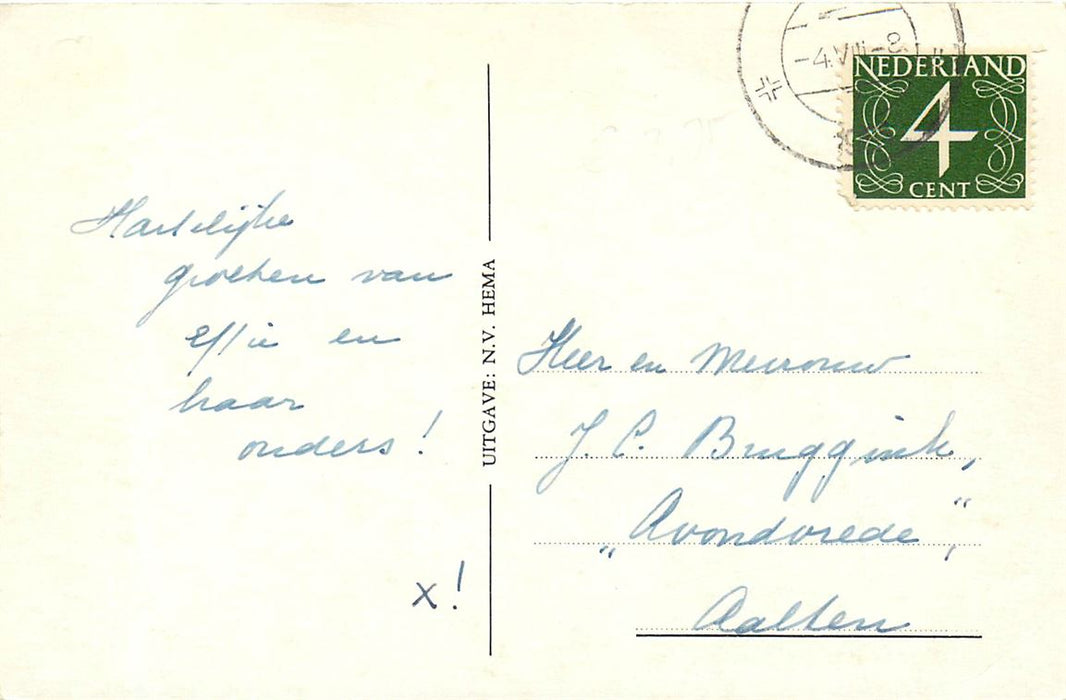 -4.VIII-8
NEDERLAND
4
CENT
Hartelijke
groeten van
Effie en
haar
ouders!
x!
UITGAVE: N.V. HEMA
Heer en Mevrouw
J. C. Bruggink,
„Avondvrede",
Aalten